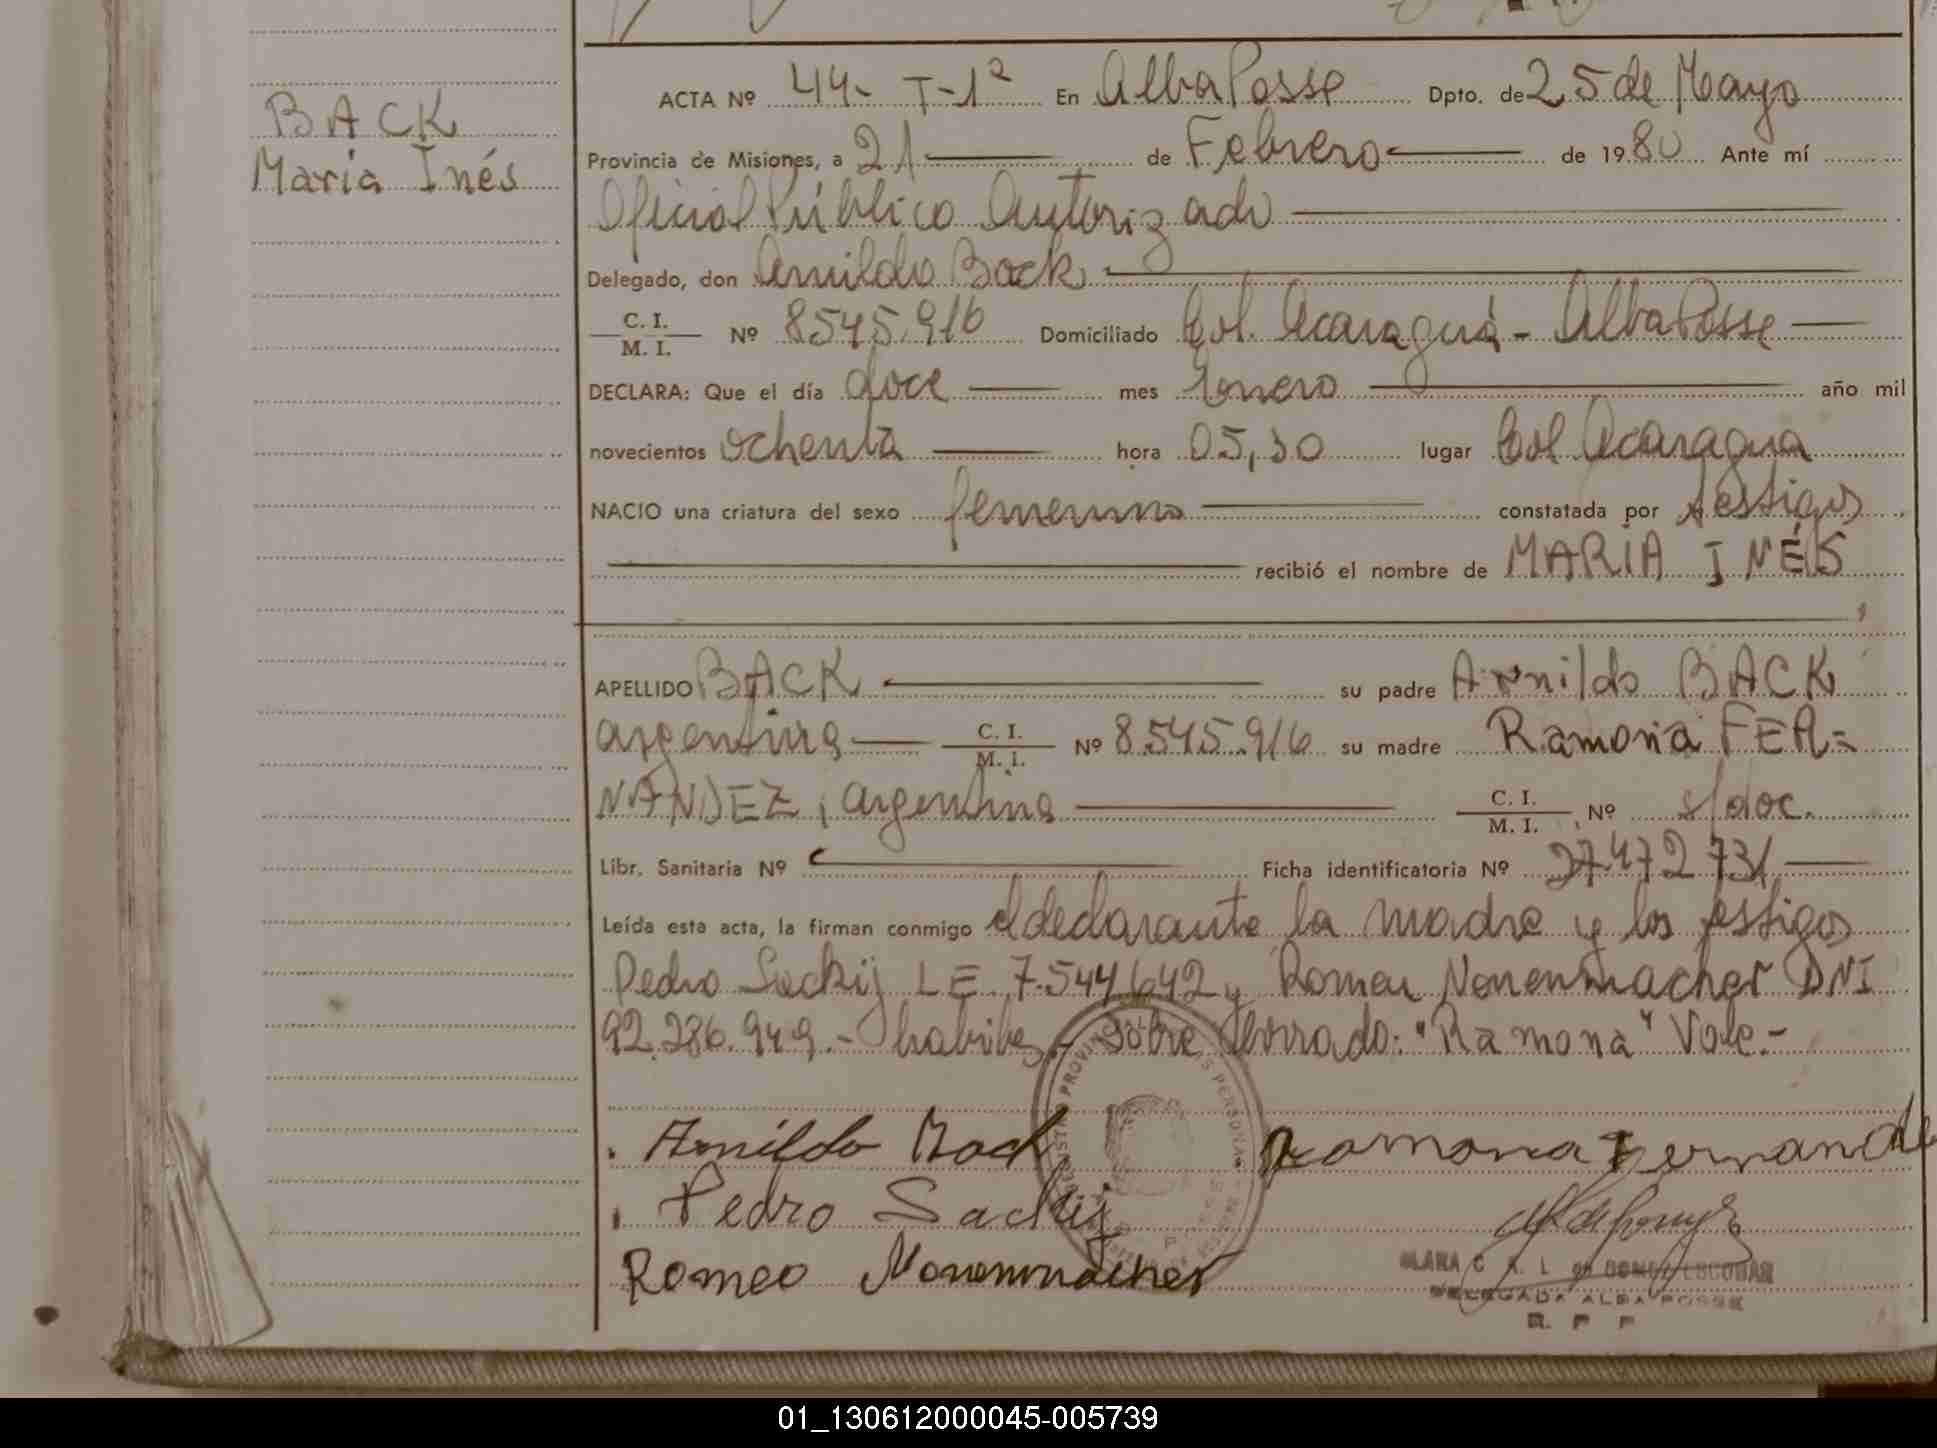 BACK
Maria Inés
ACTA Nº 44- T-1º En Alba Posse Dpto. de 25 de Mayo
Provincia de Misiones, a 21 de Febrero de 1980 Ante mí
Oficial Público Autorizado
Delegado, don Arnildo Back
C. I. / M. I. Nº 8545.916 Domiciliado Col. Acaraguá - Alba Posse
DECLARA: Que el día doce mes Enero año mil
novecientos ochenta hora 05,30 lugar Col Acaragua
NACIO una criatura del sexo femenino constatada por testigos
recibió el nombre de MARIA INÉS
APELLIDO BACK su padre Arnildo BACK
argentina C. I. / M. I. Nº 8.545.916 su madre Ramona FER=
NANDEZ, argentina C. I. / M. I. Nº s/doc.
Libr. Sanitaria Nº Ficha identificatoria Nº 27472731
Leída esta acta, la firman conmigo el declarante la madre y los testigos
Pedro Sackij LE 7.544642 y Romeu Nonenmacher DNI
92.286.949.- habiles.- Sobre borrado: "Ramona" Vale.-
Arnildo Back Ramona Fernande
Pedro Sackij
Romeo Nonenmacher
CLARA C. A. L. de GOMEZ ESCOBAR
DELEGADA ALBA POSSE
R. P. P.
01_130612000045-005739